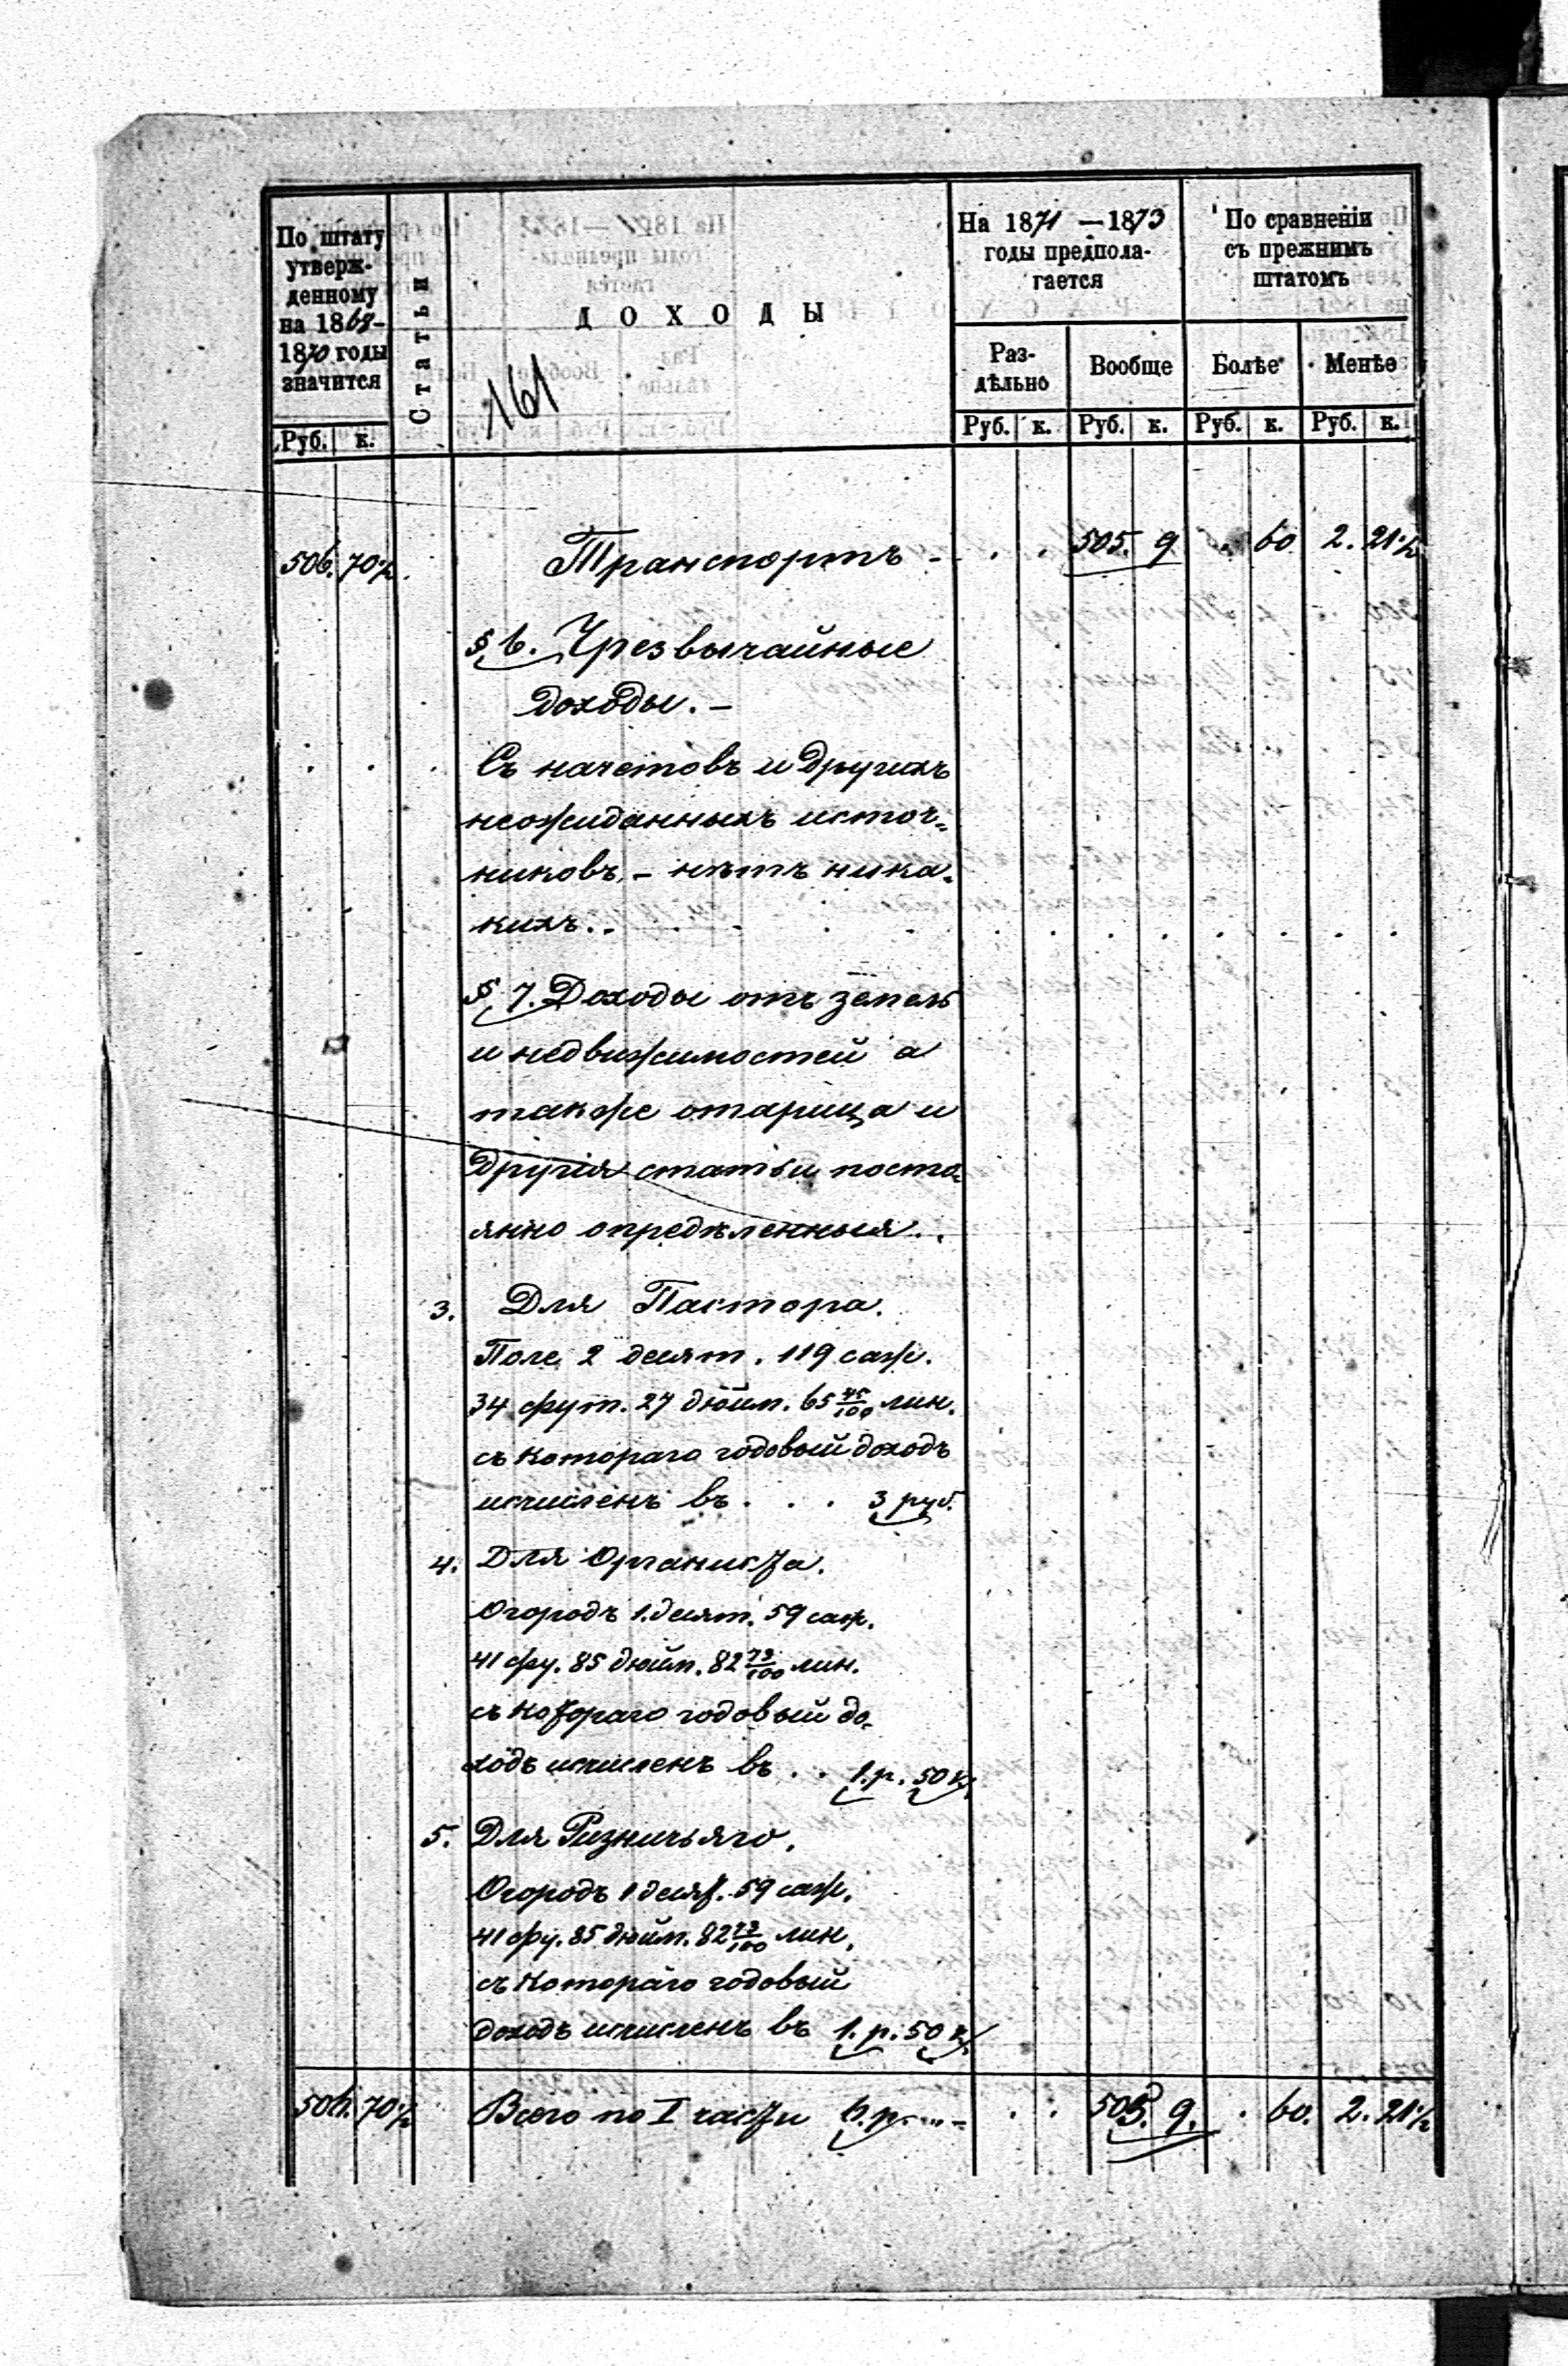 По штату
утверж-
денному
на 1868-
1870 годы
значится
Руб. к.
Статьи
ДОХОДЫ
161
На 1871 —1873
годы предпола-
гается
Раз-
дѣльно
Вообще
Руб. к. Руб. к.
По сравненіи
съ прежнимъ
штатомъ
Болѣе Менѣе
Руб. к. Руб. к.
506. 70½. Транспортъ - . . 505. 9 . 60 2. 21½
§ 6. Чрезвычайные
доходы. –
Съ начетовъ и другихъ
неожиданныхъ источ-
никовъ, – нѣтъ ника-
кихъ..
§ 7. Доходы отъ земель
и недвижимостей а
также
другія статьи посто-
янно опредѣленныя..
3. Для Пастора.
Поле 2 десят. 119 саж.
34 фут. 27 дюйм. 65 45/100 лин.
съ котораго годовый доходъ
исчисленъ въ . . . 3 руб.
4. Для Органиста.
Огородъ 1 десят. 59 саж.
41 фу. 85 дюйм. 82 73/100 лин.
съ котораго годовый до-
ходъ исчисленъ въ . . 1. р. 50 к.
5. Для Ризничьяго.
Огородъ 1 десят. 59 саж.
41 фу. 85 дюйм. 82 73/100 лин.
съ котораго годовый
доходъ исчисленъ въ 1. р. 50 к.
506. 70½ Всего по I части 6. р. - . . 505. 9. . 60. 2. 21½